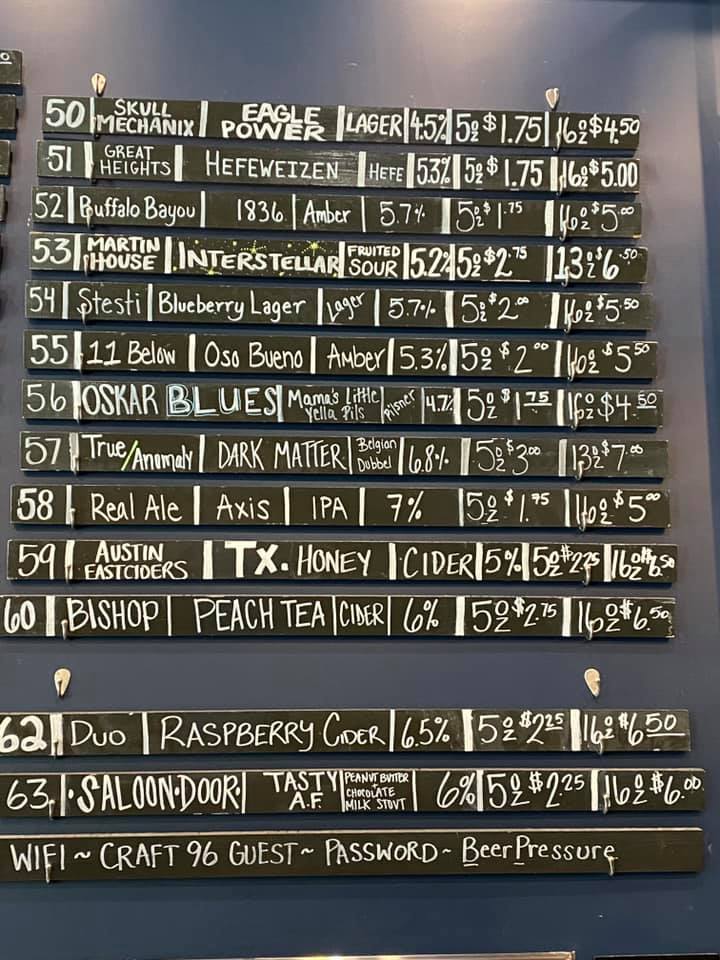 50 | SKULL MECHANIX | EAGLE POWER | LAGER | 4.5% | 5oz $1.75 | 16oz $4.50
51 | GREAT HEIGHTS | HEFEWEIZEN | HEFE | 5.3% | 5oz $1.75 | 16oz $5.00
52 | Buffalo Bayou | 1836 | Amber | 5.7% | 5oz $1.75 | 16oz $5.00
53 | MARTIN HOUSE | INTERSTELLAR | FRUITED SOUR | 5.2% | 5oz $2.75 | 13oz $6.50
54 | Stesti | Blueberry Lager | Lager | 5.7% | 5oz $2.00 | 16oz $5.50
55 | 11 Below | Oso Bueno | Amber | 5.3% | 5oz $2.00 | 16oz $5.50
56 | OSKAR BLUES | Mama's Little Yella Pils | Pilsner | 4.7% | 5oz $1.75 | 16oz $4.50
57 | True/Anomaly | DARK MATTER | Belgian Dubbel | 6.8% | 5oz $3.00 | 13oz $7.00
58 | Real Ale | Axis | IPA | 7% | 5oz $1.75 | 16oz $5.00
59 | AUSTIN EASTCIDERS | TX. HONEY | CIDER | 5% | 5oz $2.25 | 16oz $6.50
60 | BISHOP | PEACH TEA | CIDER | 6% | 5oz $2.75 | 16oz $6.50
62 | DUO | RASPBERRY CIDER | 6.5% | 5oz $2.25 | 16oz $6.50
63 | SALOON DOOR | TASTY A.F. | PEANUT BUTTER + CHOCOLATE MILK STOUT | 6% | 5oz $2.25 | 16oz $6.00
WIFI ~ CRAFT 96 GUEST ~ PASSWORD ~ BeerPressure